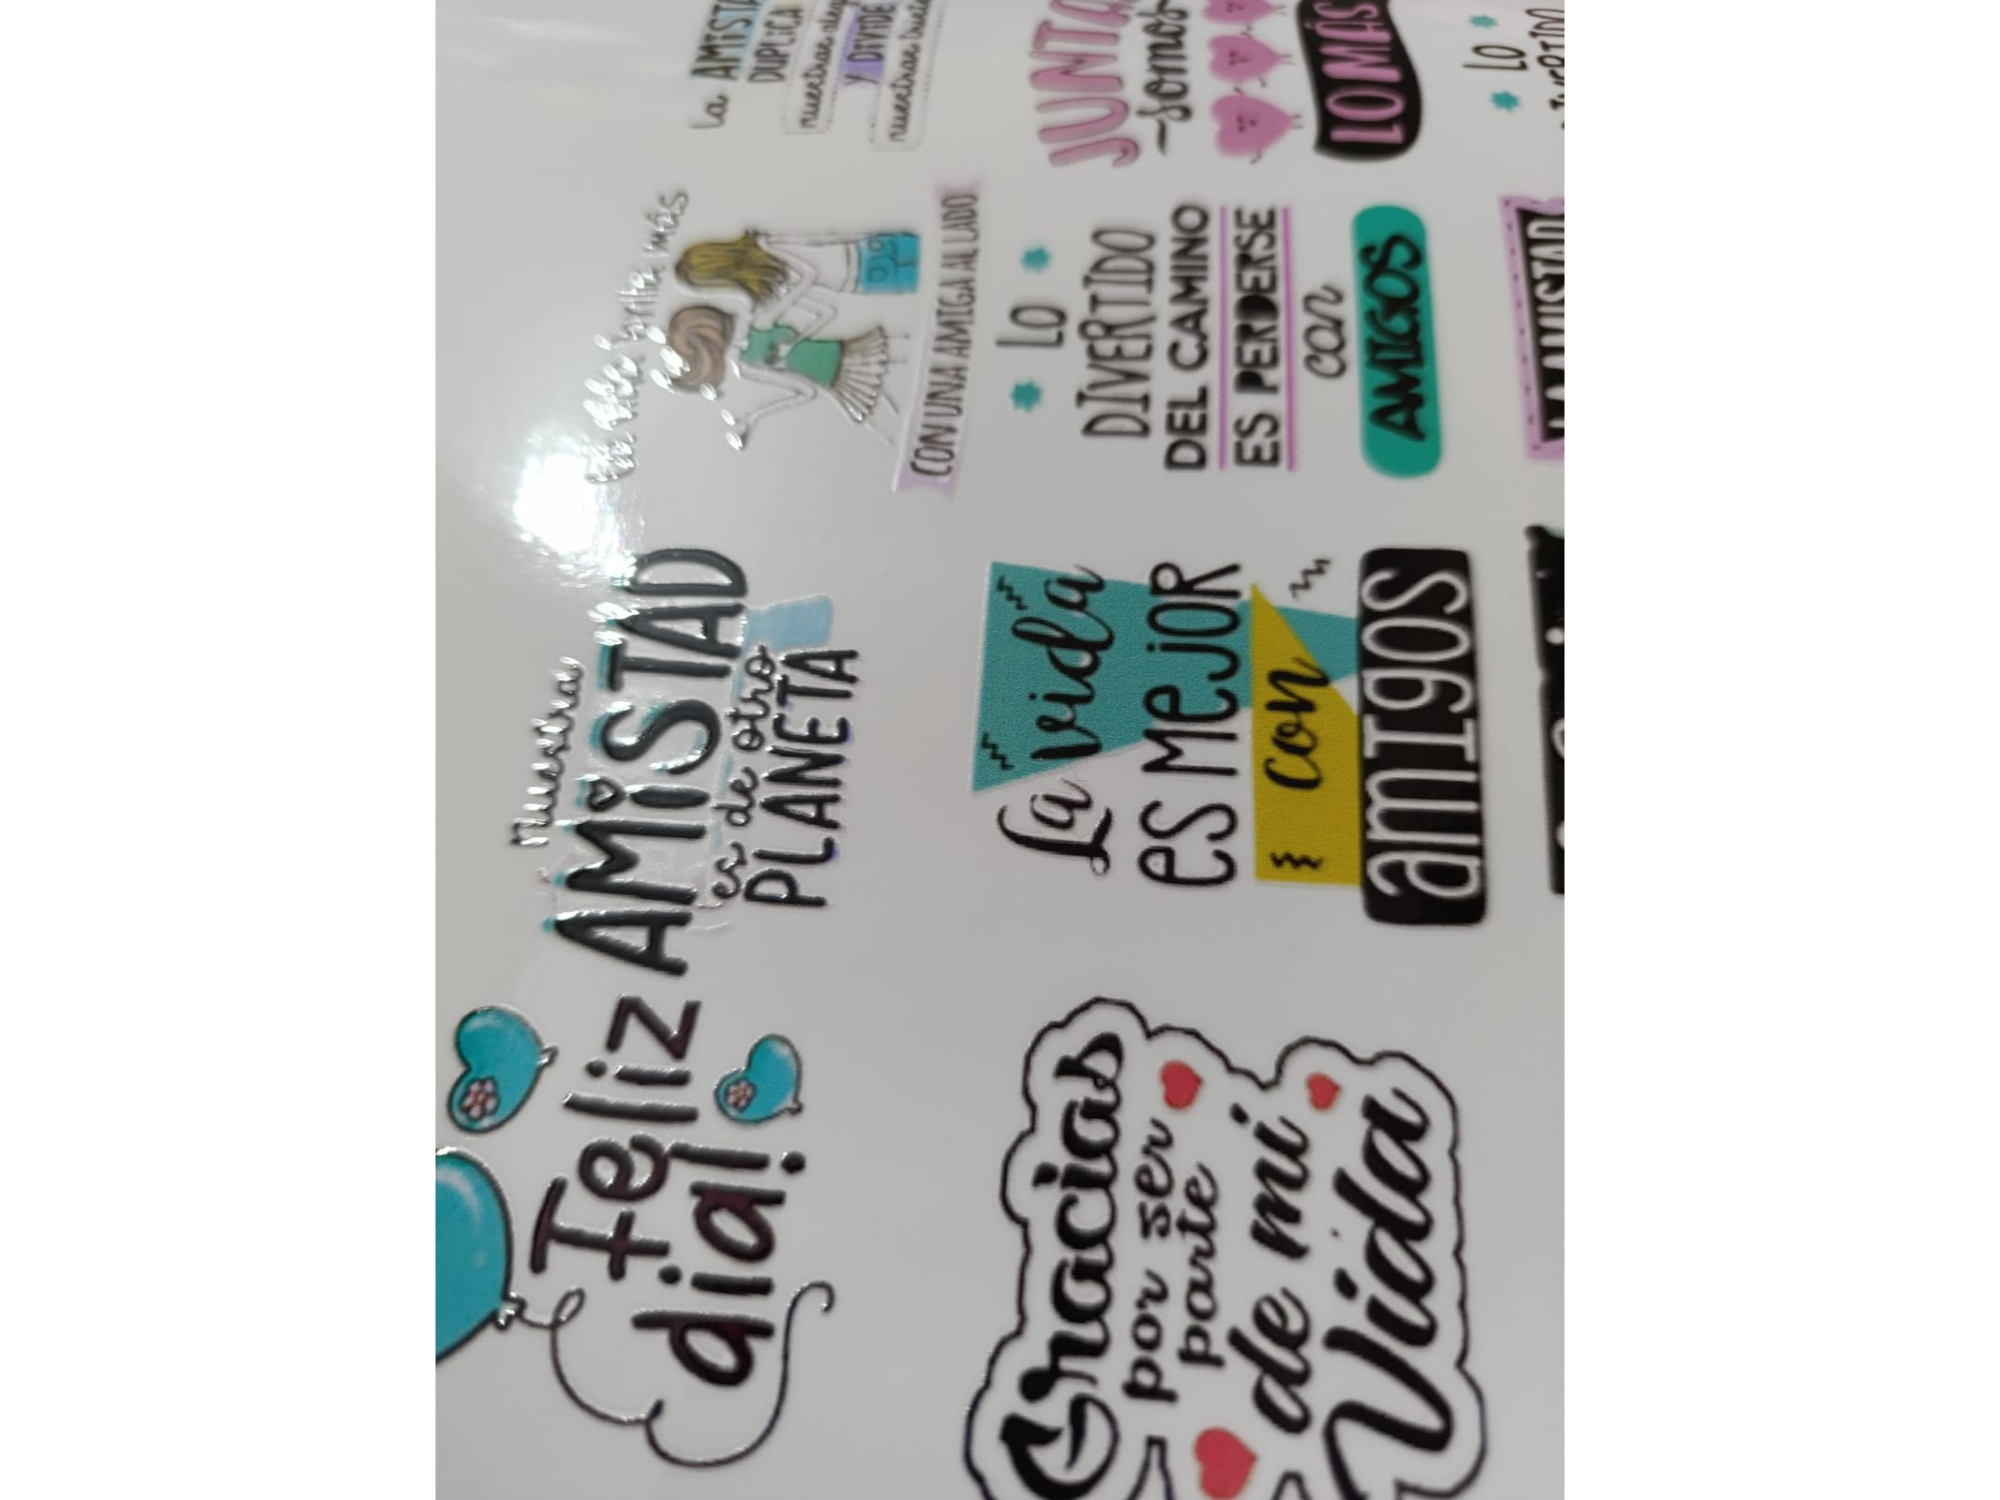 Feliz
día!
Nuestra
AMiSTAD
es de otro
PLANETA
brilla más
CON UNA AMIGA AL LADO
La AMISTA
DUPLICA
nuestras aleg
Y DIVIDE
nuestras triste
Gracias
por ser
parte
de mi
Vida
La vida
es Mejor
con
amigos
LO
DIVERTIDO
DEL CAMINO
ES PERDERSE
con
AMIGOS
JUNTA
somos
LO MÁS
LO